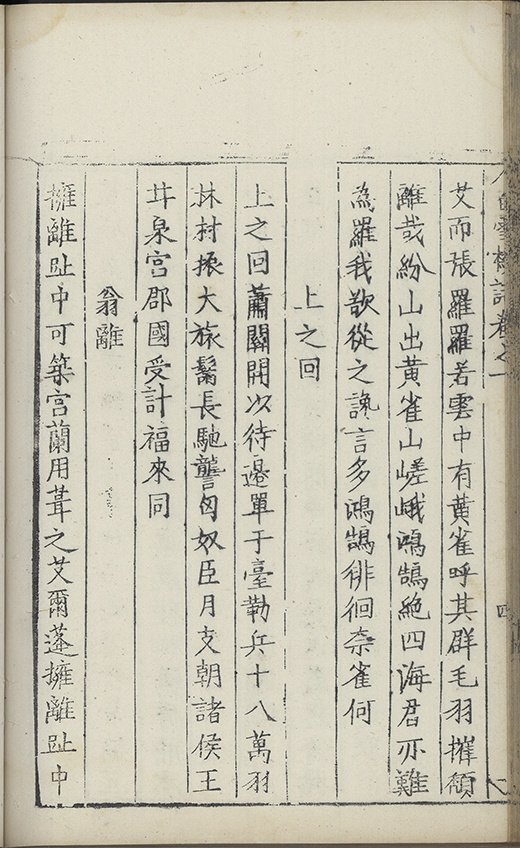 卷之一
艾而張羅羅若雲中有黄雀呼其群毛羽摧頹
離哉紛山出黄雀山嵯峨鴻鵠絶四海君亦難
為羅我欲從之讒言多鴻鵠徘徊奈雀何
上之回
上之回蕭關開以待邊單于臺勒兵十八萬羽
林材振大旅鬗長馳讋匈奴臣月支朝諸侯王
甘泉宫郡國受計福來同
翁離
擁離趾中可築宫蘭用葺之艾爾蓬擁離趾中